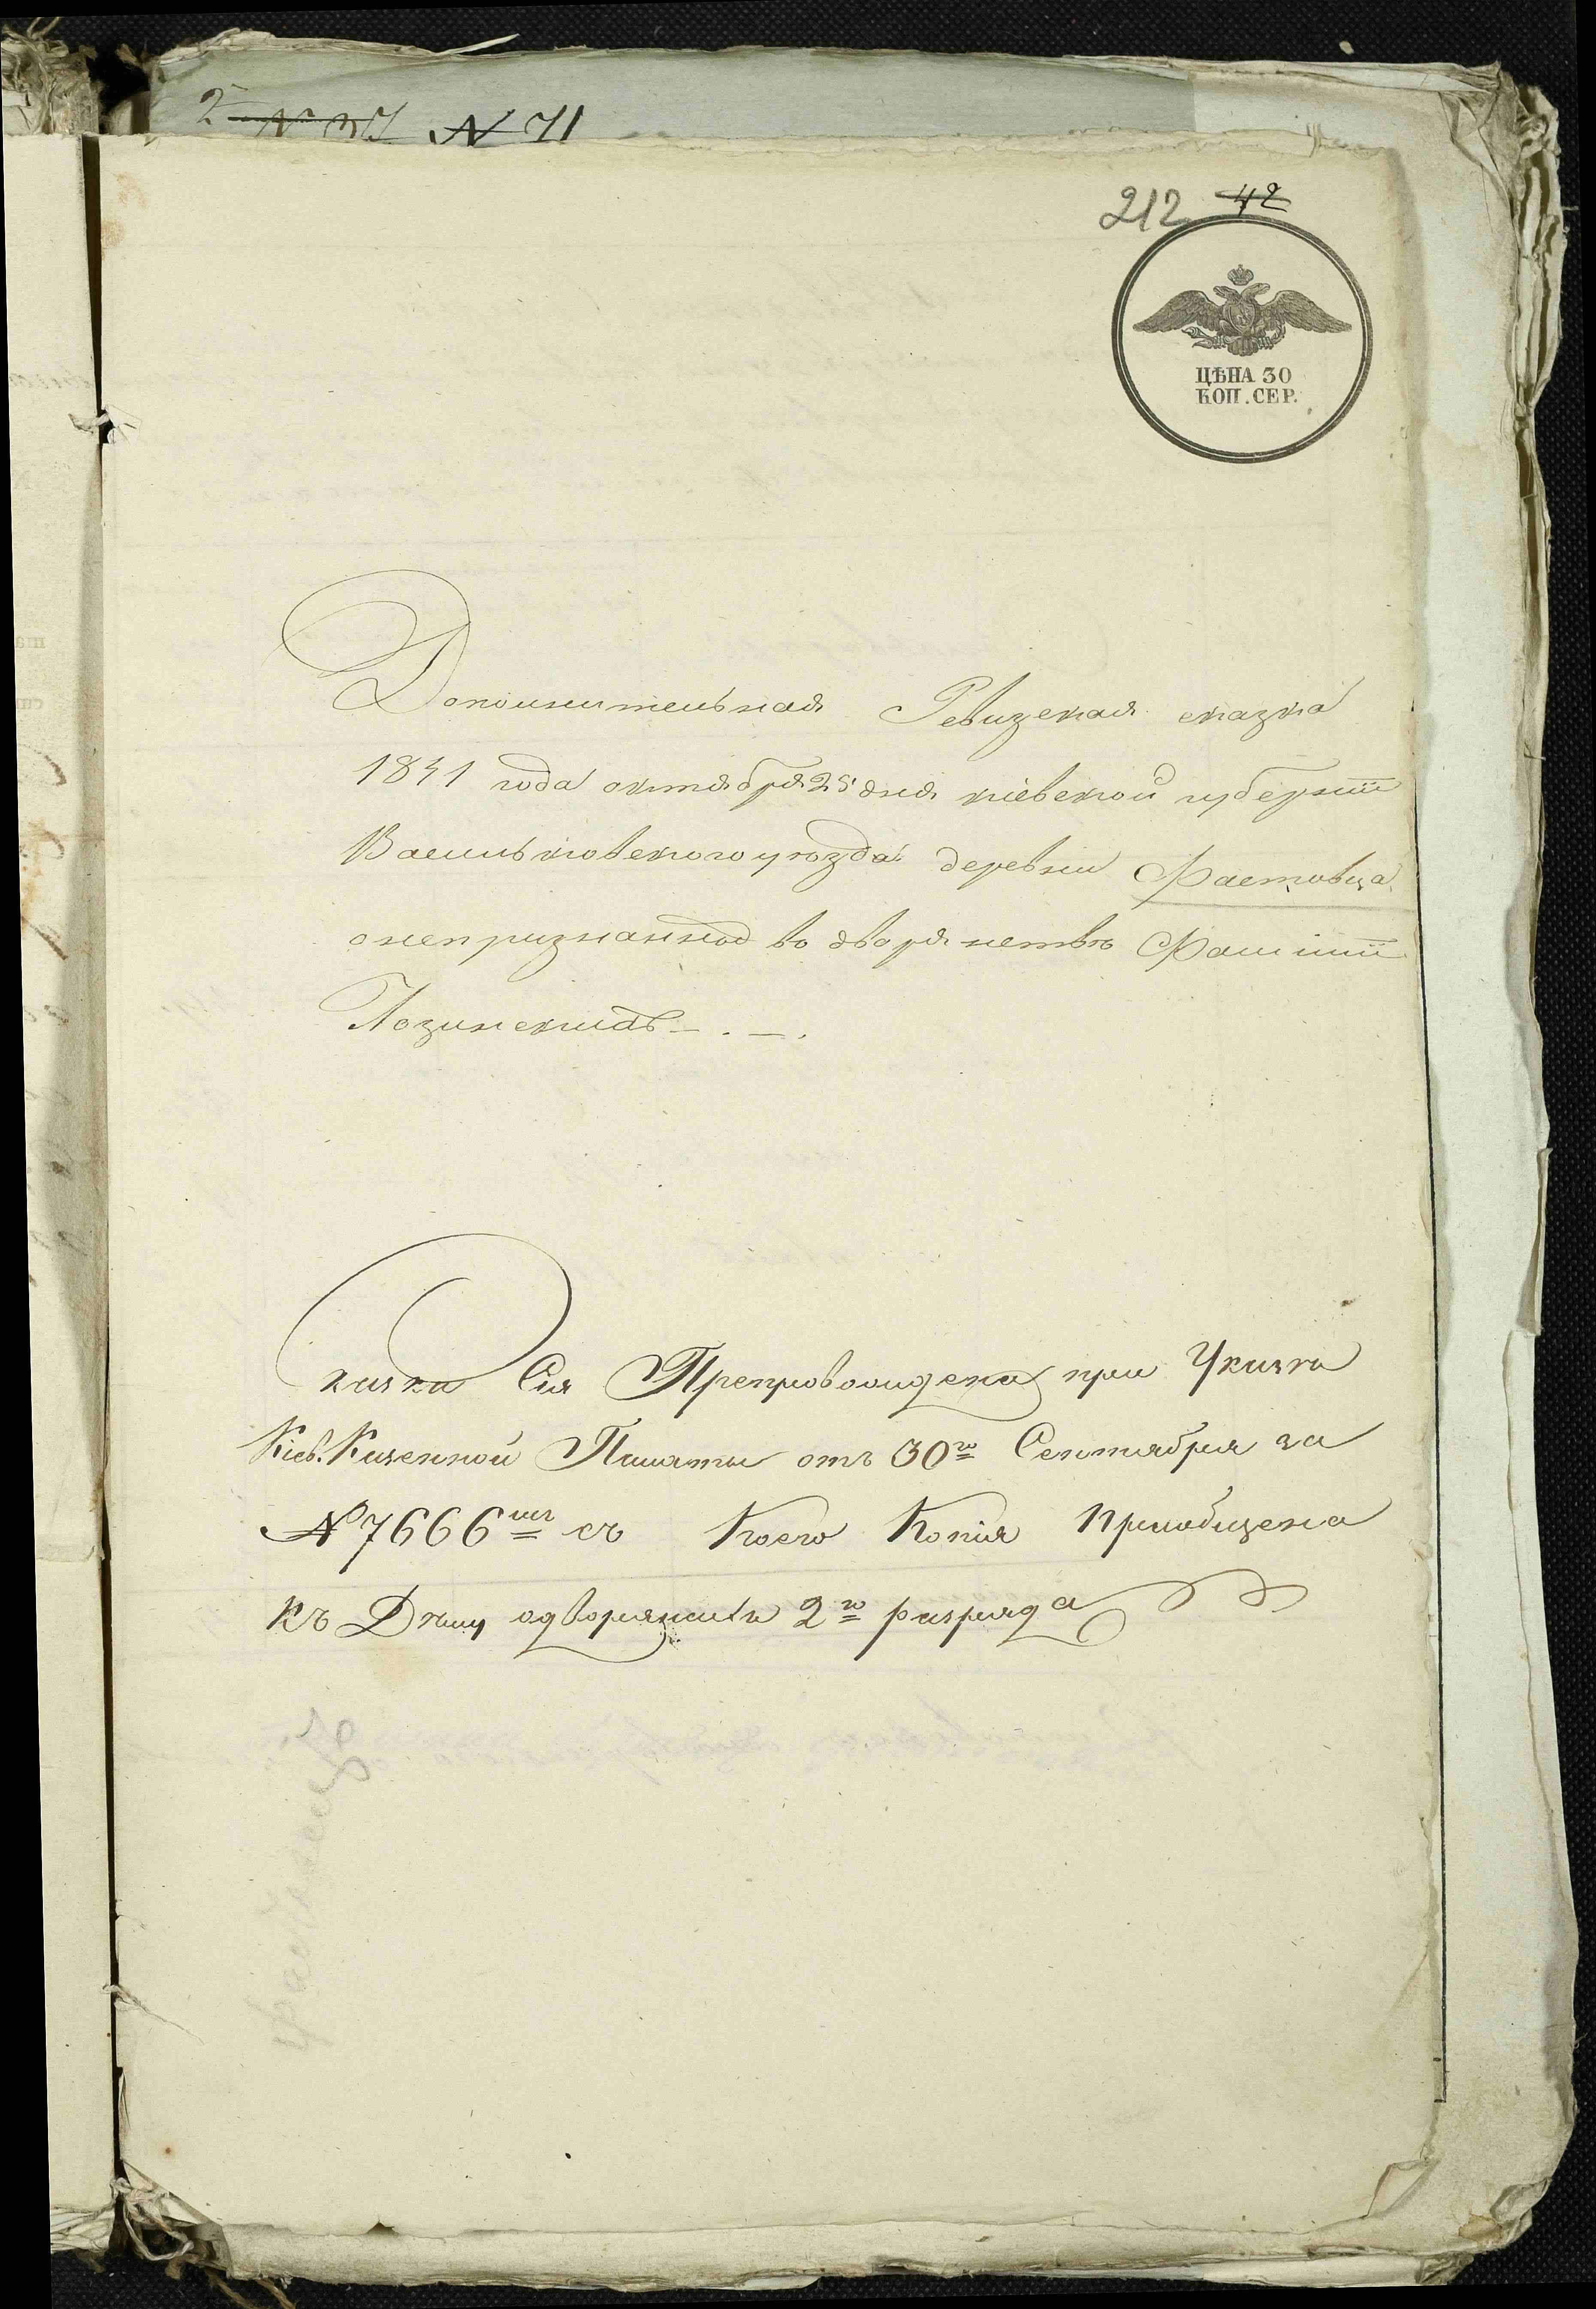 № 37 № 71
212 42
ЦѢНА 30
КОП. СЕР.
Дополнительная Ревизская сказка
1841 года октября 25 дня кіевской губерніи
Васильковского уѣзда деревни Фастовца
о непризнанной во дворянствѣ Фамиліи
Лозинскихъ
Сказка Сія Препровождена при Указѣ
Кіев. Казенной Палаты отъ 30го Сентября за
№ 7666мъ съ коего Копія Пріобщена
къ Дѣлу одворянахъ 2го разряда